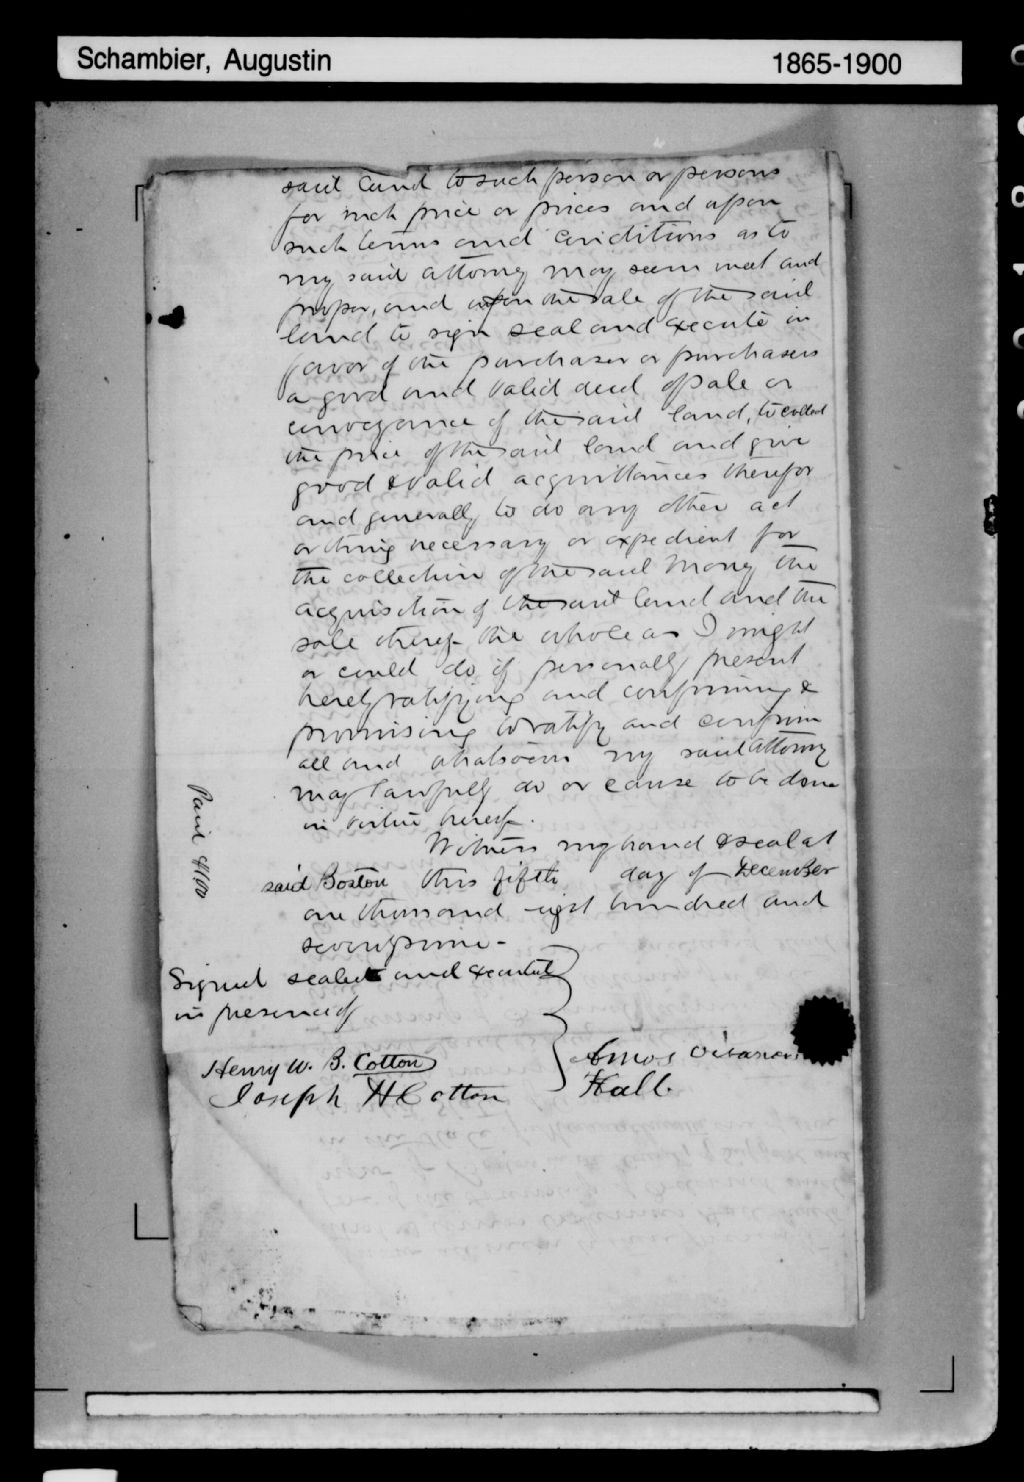 Schambier, Augustin 1865-1900
said land to such person or persons
for such price or prices and upon
such terms and conditions as to
my said attorney may seem meet and
proper, and upon the sale of the said
land to sign seal and execute in
favor of the purchaser or purchasers
a good and valid deed of sale or
conveyance of the said land, to collect
the price of the said land and give
good & valid acquittances therefor
and generally to do any other act
or thing necessary or expedient for
the collection of the said money the
acquisition of the said land and the
sale thereof the whole as I might
or could do if personally present
hereby ratifying and confirming &
promising to ratify and confirm
all and whatsoever my said attorney
may lawfully do or cause to be done
in virtue hereof.
Witness my hand & seal at
said Boston this fifth day of December
one thousand eight hundred and
seventy nine -
Signed sealed and executed
in presence of
Henry W. B. Cotton
Joseph H Cotton
Amos
Hall.
Paid